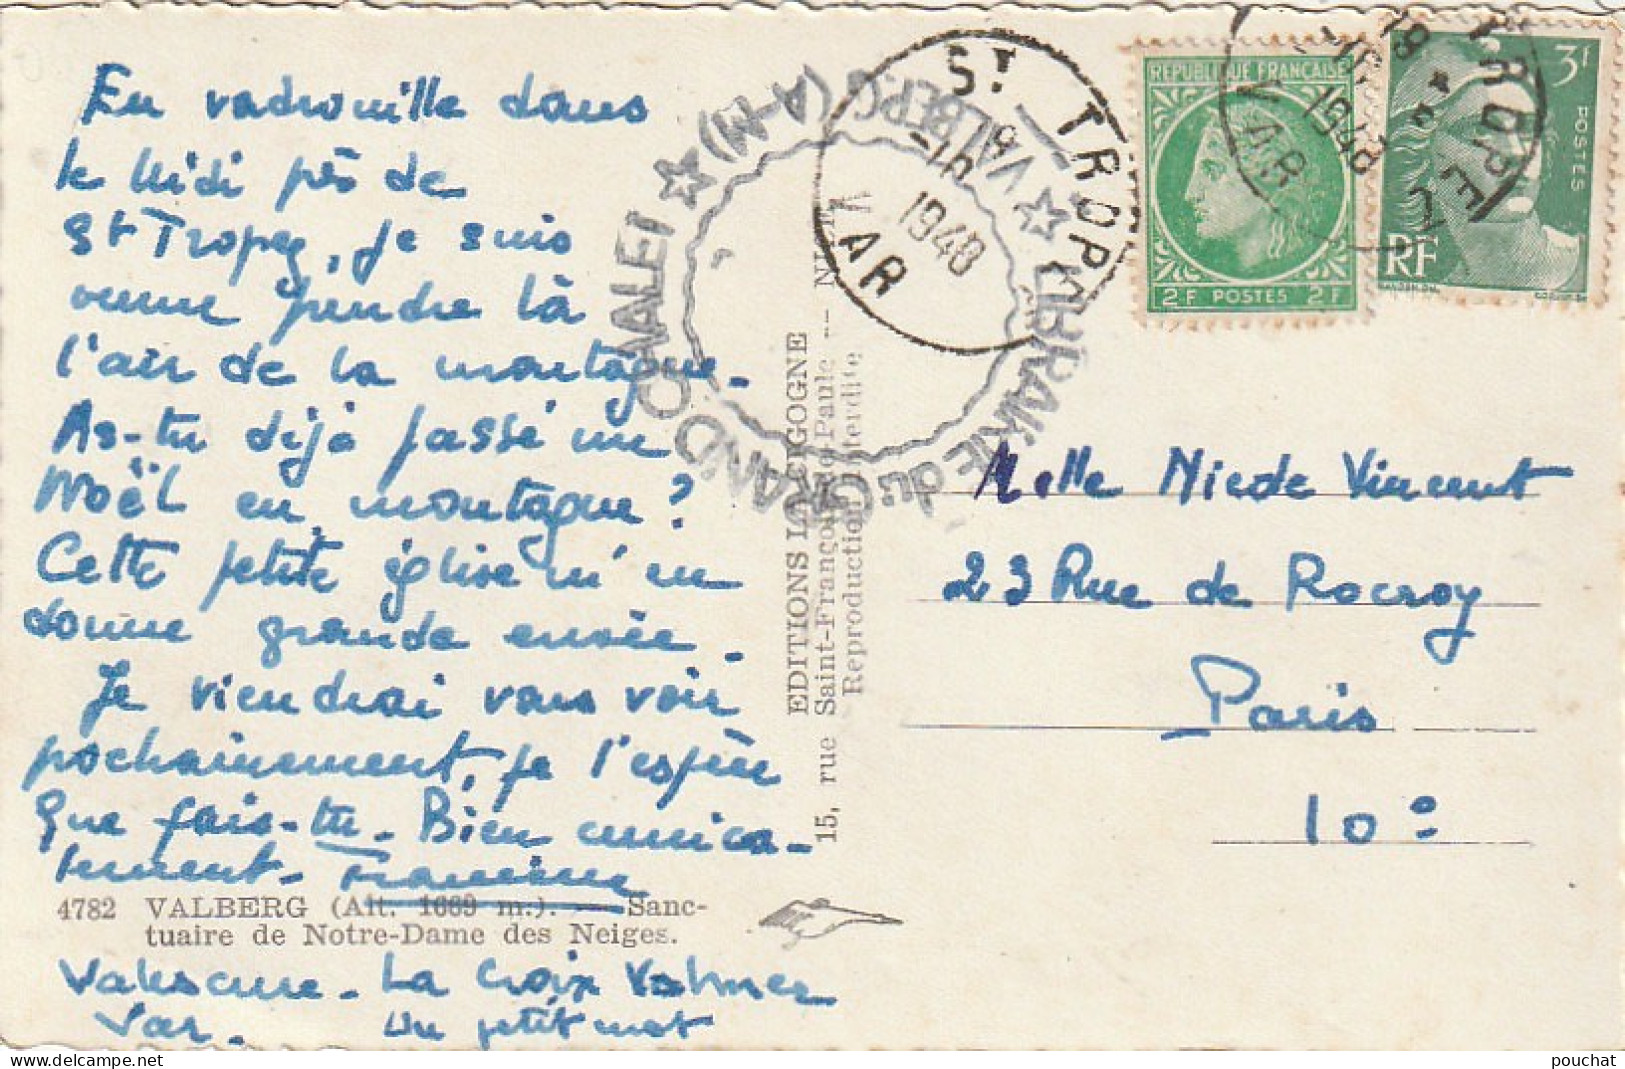 En vadrouille dans
le Midi près de
St Tropez, je suis
venue prendre là
l'air de la montagne.
As-tu déjà passé un
Noël en montagne ?
Cette petite église m'en
donne grande envie.
Je viendrai vous voir
prochainement, je l'espère
Que fais-tu. Bien amica-
lement. Francine
4782 VALBERG (Alt. 1669 m.). — Sanc-
tuaire de Notre-Dame des Neiges.
Valescure. La Croix Valmer
Var. Un petit mot
EDITIONS LA CIGOGNE
15, rue Saint-François-de-Paule — NICE
Reproduction Interdite
LIBRAIRIE du GRAND CHALET
★ VALBERG (A-M) ★
ST TROPEZ
VAR
1948
REPUBLIQUE FRANÇAISE
2F POSTES 2F
3F
POSTES
RF
ST TROPEZ
VAR
1948
Melle Nicole Vincent
23 Rue de Rocroy
Paris
10e
pouchat